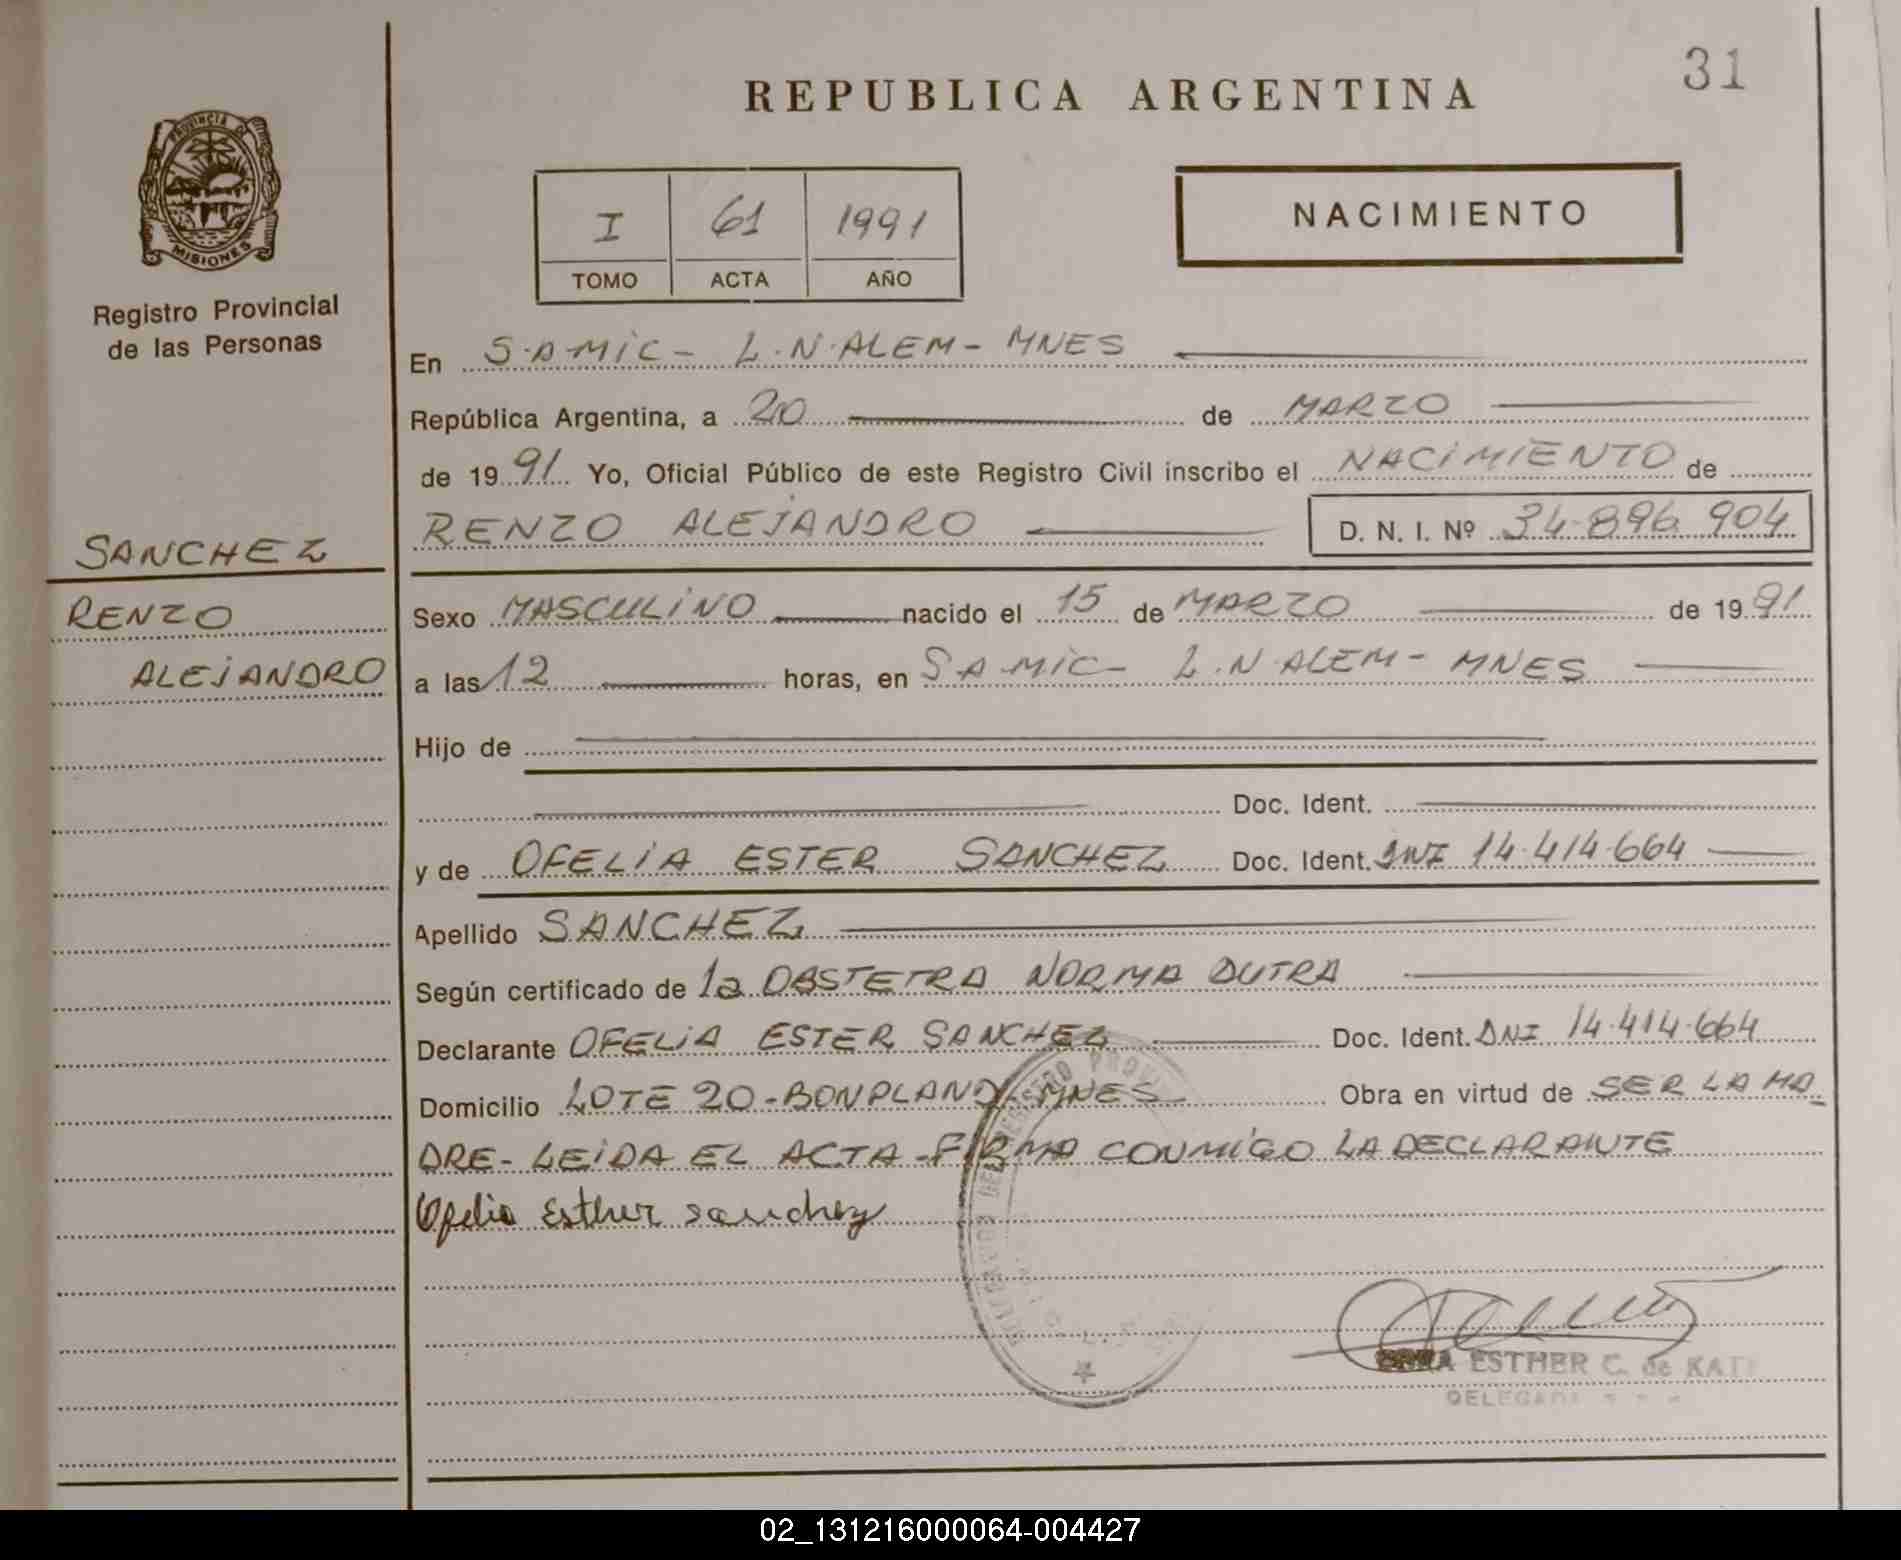 31
REPUBLICA ARGENTINA
PROVINCIA DE
MISIONES
Registro Provincial
de las Personas
I 61 1991
TOMO ACTA AÑO
NACIMIENTO
En S.A.MiC - L.N.ALEM - MNES
República Argentina, a 20 de MARZO
de 1991 Yo, Oficial Público de este Registro Civil inscribo el NACiMiENTO de
RENZO ALEJANDRO D. N. I. Nº 34.896.904
SANCHEZ
RENZO
ALEJANDRO
Sexo MASCULiNO nacido el 15 de MARZO de 1991
a las 12 horas, en S.A.MiC - L.N.ALEM - MNES
Hijo de
Doc. Ident.
y de OFELiA ESTER SANCHEZ Doc. Ident. DNI 14.414.664
Apellido SANCHEZ
Según certificado de la OBSTETRA NORMA DUTRA
Declarante OFELiA ESTER SANCHEZ Doc. Ident. DNI 14.414.664
Domicilio LOTE 20 - BONPLAND - MNES Obra en virtud de SER LA MA
DRE - LEiDA EL ACTA - FIRMA CONMiGO LA DECLARANTE
Ofelia Esther Sanchez
REGISTRO
ESTHER C. de
DELEGADA
02_131216000064-004427